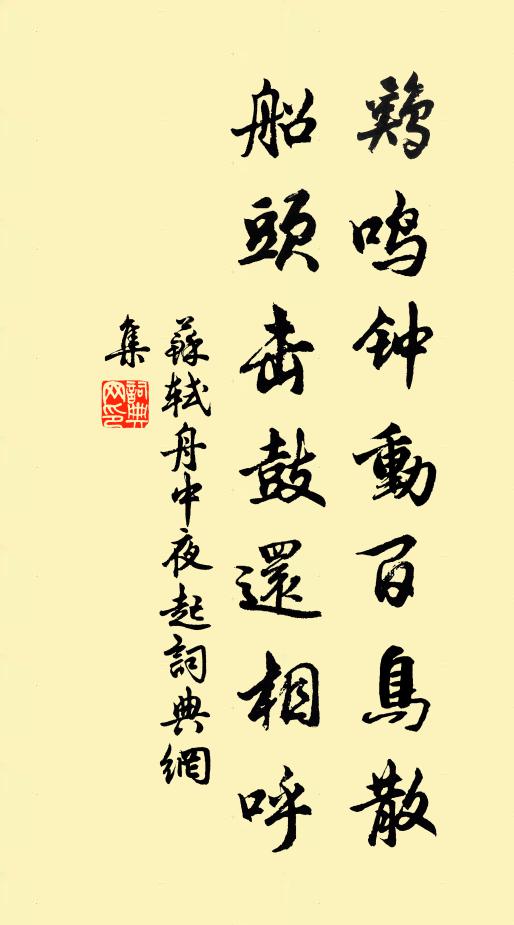 鷄鳴钟動百鳥散
船頭击鼓還相呼
蘇軾舟中夜起詞典網
集
詞典
网印